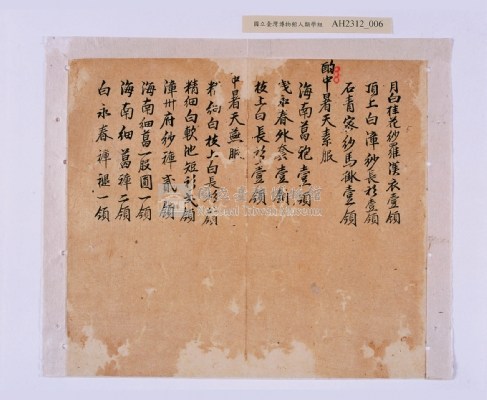 國立臺灣博物館人類學組 AH2312_006
月白桂花紗羅漢衣壹領
頂上白漳紗長衫壹領
石青家紗馬褂壹領
酌中暑天素服
海南葛袍壹領
永春外套壹領
枝上白長衫壹領
中暑天益服
精細白枝上白長衫領
精細白軟池短衫貳領
漳州府紗褲貳領
海南細葛一股圓一領
海南細葛褲二領
白永春褲褪一領